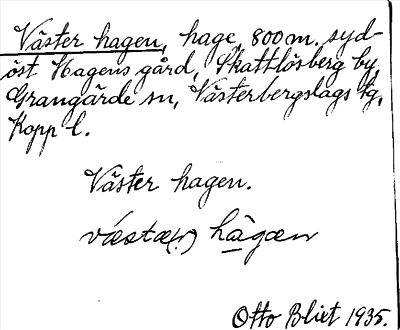 Väster hagen, hage, 800 m. syd-
öst Hagens gård, Skattlösberg by,
Grangärde sn, Västerbergslags tg,
Kopp l.
Väster hagen.
væstæ(r) hāgæn
Otto Blixt 1935.